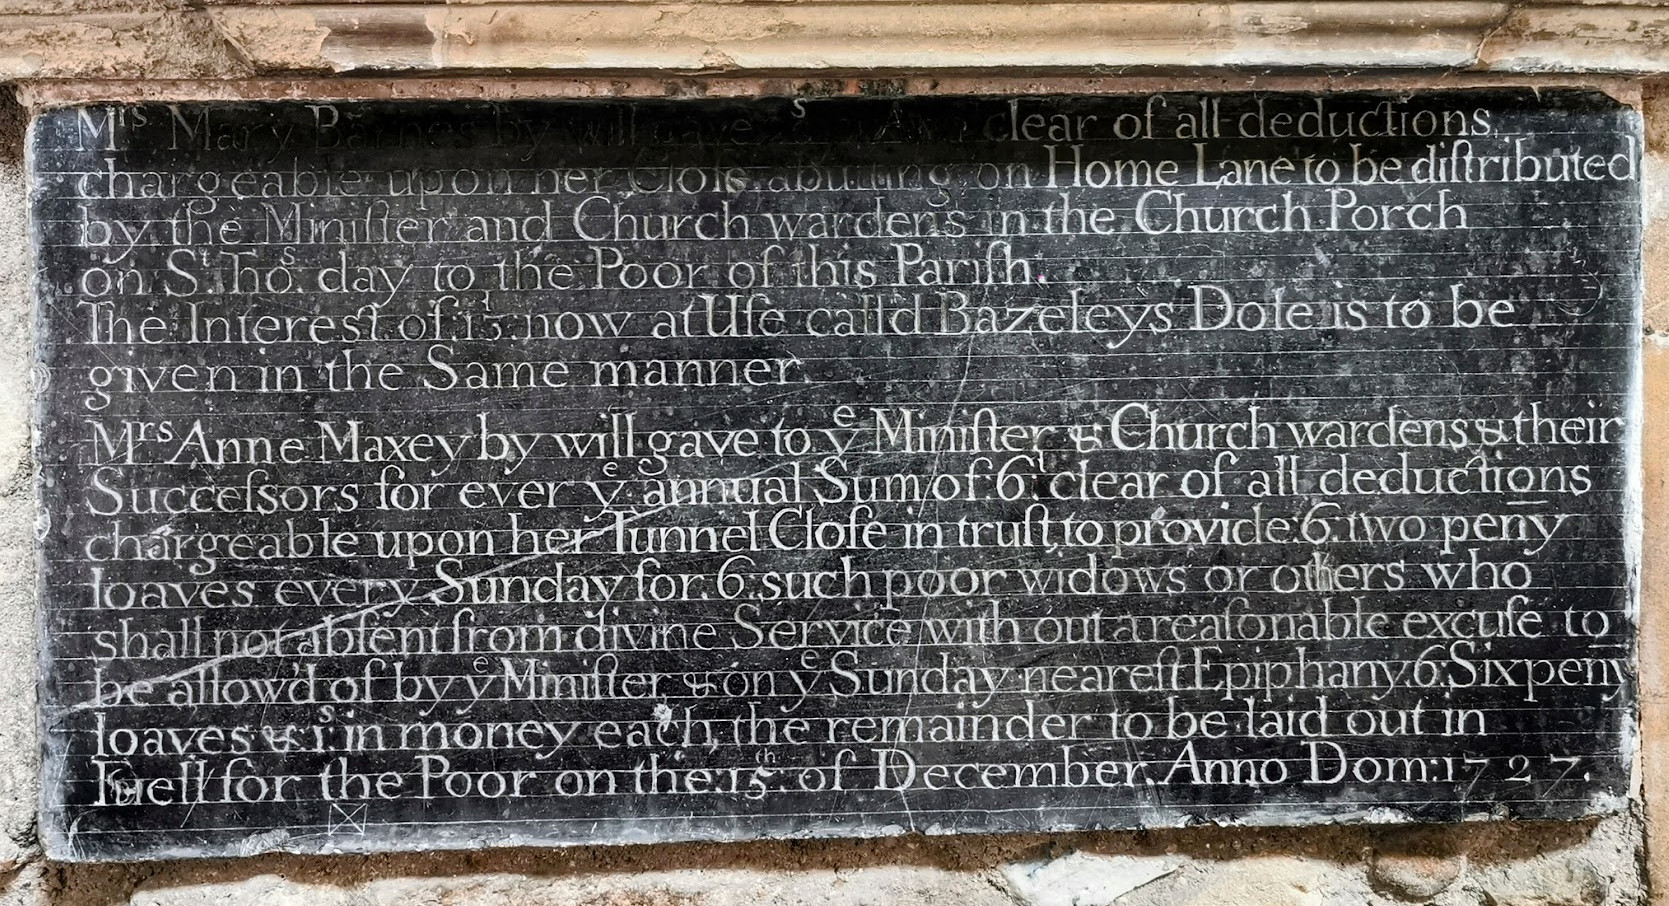 Mrs Mary Barnes by will gave clear of all deductions
chargeable upon her Cloſe abutting on Home Lane to be diſtributed
by the Miniſter and Church wardens in the Church Porch
on St. Thos. day to the Poor of this Pariſh.
The Intereſt of 15l now at Uſe call'd Bazeleys Dole is to be
given in the Same manner.
Mrs Anne Maxey by will gave to ye Miniſter & Church wardens & their
Succeſsors for ever ye annual Sum of:6l: clear of all deductions
chargeable upon her Tunnel Cloſe in truſt to provide:6: two peny
loaves every Sunday for.6.such poor widows or others who
shall not abſent from divine Service with out a reaſonable excuſe to
be allow'd of by ye Miniſter & on ye Sunday neareſt Epiphany.6.Six peny
loaves & 1s: in money each, the remainder to be laid out in
Fuell for the Poor on the:15th: of December. Anno Dom:1727.